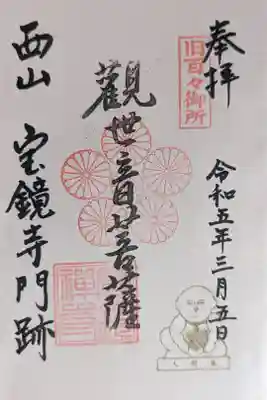 奉拝
旧百々御所
令和五年三月五日
觀世音菩薩
西山 宝鏡寺門跡